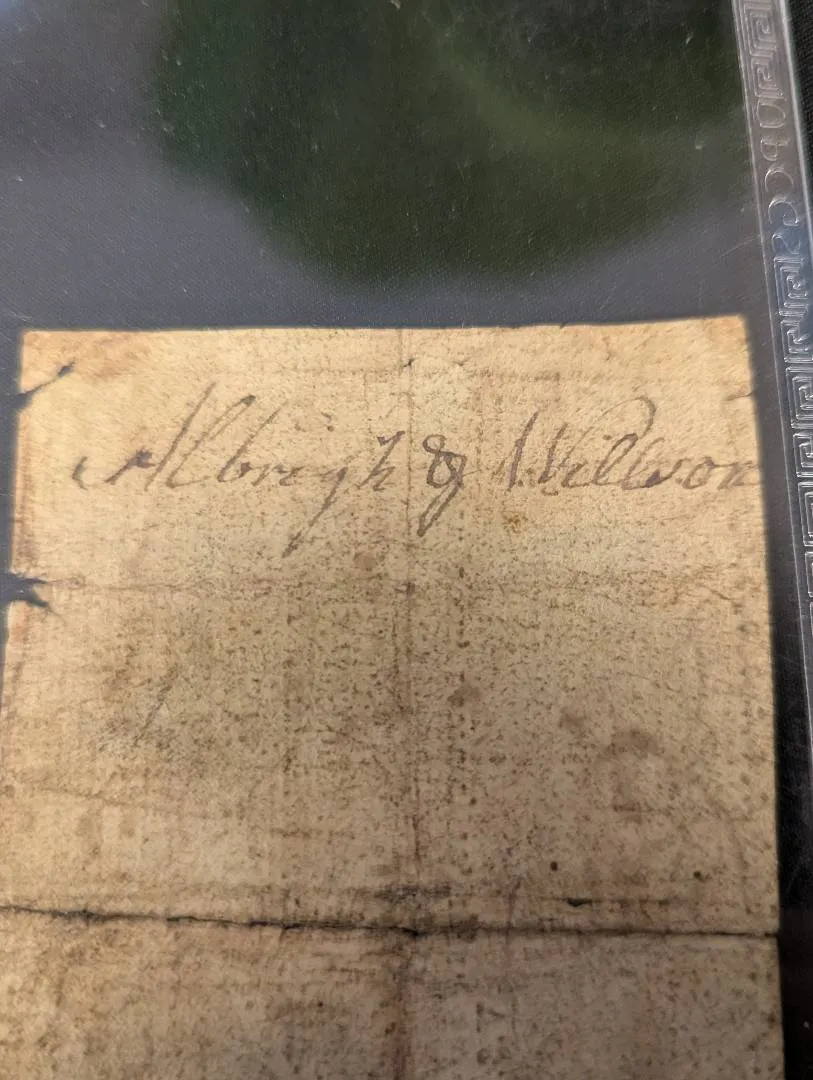 Albrigh & Willson